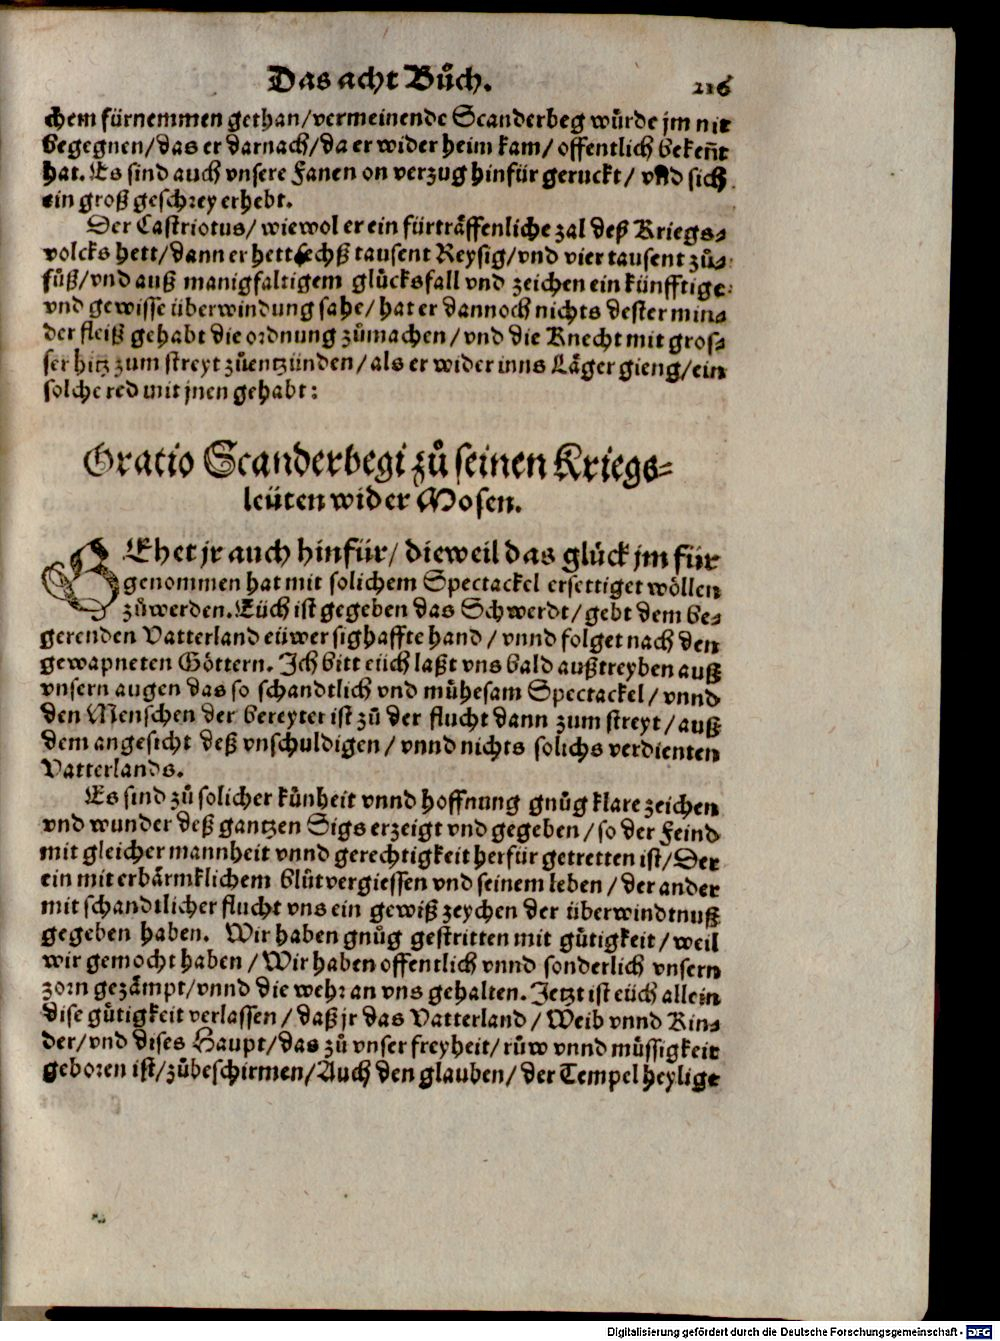 Das acht Bůch. 216
chem fürnemmen gethan/vermeinende Scanderbeg würde jm nit
begegnen/das er darnach/da er wider heim kam/ offentlich bekeñt
hat. Es sind auch vnsere Fanen on verzug hinfür geruckt/ vnd sich
ein groß geschrey erhebt.
Der Castriotus/ wiewol er ein fürträffenliche zal deß Kriegs⸗
volcks hett/dann er hett sechß tausent Reysig/vnd vier tausent zů⸗
fůß/vnd auß manigfaltigem glücksfall vnd zeichen ein künfftige
vnd gewisse überwindung sahe/ hat er dannoch nichts dester min⸗
der fleiß gehabt die ordnung zůmachen/ vnd die Knecht mit gros⸗
ser hitz zum streyt zůentzünden/ als er wider inns Läger gieng/ein
solche red mit jnen gehabt:
Oratio Scanderbegi zů seinen Kriegs⸗
leüten wider Mosen.
GEhet jr auch hinfür/ dieweil das glück jm für
genommen hat mit solichem Spectackel ersettiget wöllen
zůwerden. Eüch ist gegeben das Schwerdt/ gebt dem be⸗
gerenden Vatterland eüwer sighaffte hand/ vnnd folget nach den
gewapneten Göttern. Ich bitt eüch laßt vns bald außtreyben auß
vnsern augen das so schandtlich vnd mühesam Spectackel/ vnnd
den Menschen der bereyter ist zů der flucht dann zum streyt/ auß
dem angesicht deß vnschuldigen/ vnnd nichts solichs verdienten
Vatterlands.
Es sind zů solicher künheit vnnd hoffnung gnůg klare zeichen
vnd wunder deß gantzen Sigs erzeigt vnd gegeben/ so der Feind
mit gleicher mannheit vnnd gerechtigkeit herfür getretten ist/Der
ein mit erbärmklichem blůtvergiessen vnd seinem leben/ der ander
mit schandtlicher flucht vns ein gewiß zeychen der überwindtnuß
gegeben haben. Wir haben gnůg gestritten mit gütigkeit/ weil
wir gemocht haben/ Wir haben offentlich vnnd sonderlich vnsern
zorn gezämpt/vnnd die wehr an vns gehalten. Jetzt ist eüch allein
dise gütigkeit verlassen/ daß jr das Vatterland/ Weib vnnd Kin⸗
der/vnd dises Haupt/das zů vnser freyheit/ růw vnnd müssigkeit
geboren ist/zůbeschirmen/Auch den glauben/ der Tempel heylige
Digitalisierung gefördert durch die Deutsche Forschungsgemeinschaft - DFG